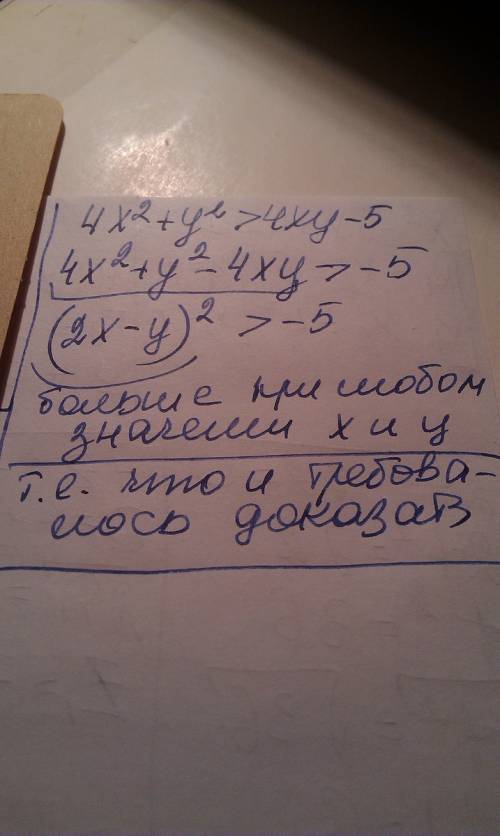 4x²+y²>4xy-5
4x²+y²-4xy>-5
(2x-y)²>-5
больше при любом
значении x и y
т.е. что и требова-
лось доказать